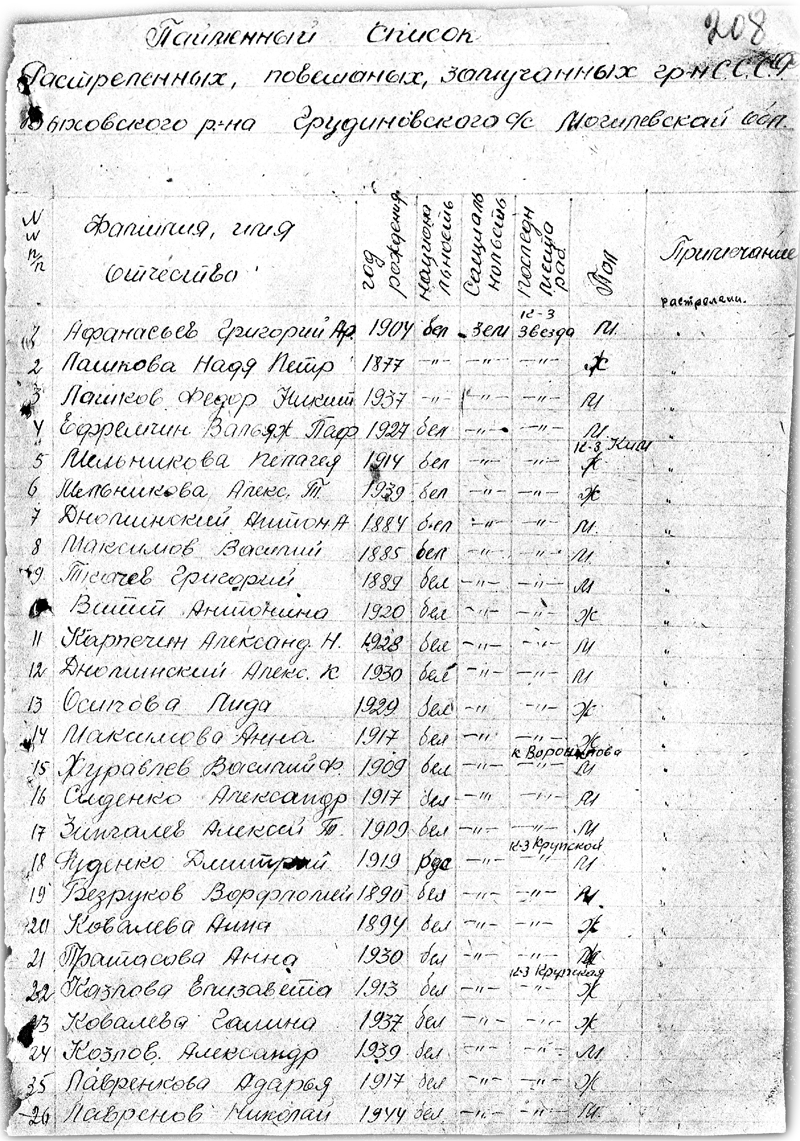 208
Паименный список
Растреленных, повешаных, замучанных гр-н С.С.С.Р
Быховского р-на Грудиновского с/с Могилевской обл.
N N п/п Фамилия, имя отчество год рождения национальность Социальность последн место раб Пол Примечание
растрелени.
к-з
1 Афанасьев Григорий Ар. 1904 бел зем звезда м. "
2 Пашкова Надя Петр 1877 -"- -"- -"- ж "
3 Пашков Федор Никит 1937 -"- -"- -"- м "
4 Ефремчин Паф 1927 бел -"- -"- м "
к-з Ким
5 Мельникова Пелагея 1914 бел -"- -"- ж "
6 Мельникова Алекс. Т. 1939 бел -"- -"- ж "
7 Дноминский Антон А 1884 бел -"- -"- м. "
8 Максимов Василий 1885 бел -"- -"- м. "
9 Ткачев Григорий 1889 бел -"- -"- м "
Витит Антонина 1920 бел -"- -"- ж "
11 Карпечин Александ. Н. 1928 бел -"- -"- м "
12 Дноминский Алекс. К 1930 бел -"- -"- м "
13 Осипова Лида 1929 бел -"- -"- ж "
14 Максимова Анна 1917 бел -"- -"- ж "
к Ворошилова
15 Журавлев Василий Ф. 1909 бел -"- -"- м "
16 Сиденко Александр 1917 бел -"- -"- м "
17 Зингалев Алексей Т. 1909 бел -"- -"- м "
к-з Крупской
18 Руденко Дмитрий 1919 рус -"- -"- м "
19 Безруков Ворфоломей 1890 бел -"- -"- м "
20 Ковалева Анна 1894 бел -"- -"- ж "
21 Пратасова Анна 1930 бел -"- -"- ж "
к-з Крупская
22 Казлова Елизавета 1913 бел -"- -"- ж "
23 Ковалева Галина 1937 бел -"- -"- ж "
24 Козлов. Александр 1939 бел -"- -"- м "
25 Лавренкова Адарья 1917 бел -"- -"- ж "
26 Лавренов Николай 1944 бел -"- -"- м. "